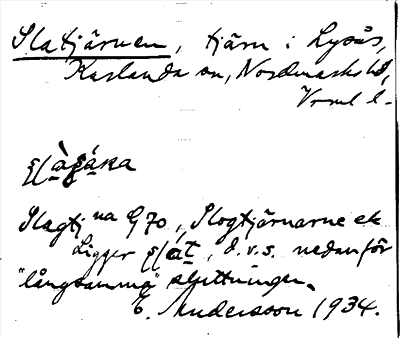 Slatjärnen, tjärn i Lysås,
Karlanda sn, Nordmarks hd,
Vrml l.
Slagtj na G 70, Slogtjärnarne ek
Ligger slät, d.v.s. nedanför
"långsamma" sluttningen.
E. Andersson 1934.